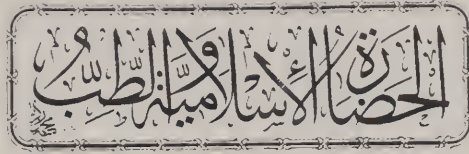 الحضارة الإسلامية والطب